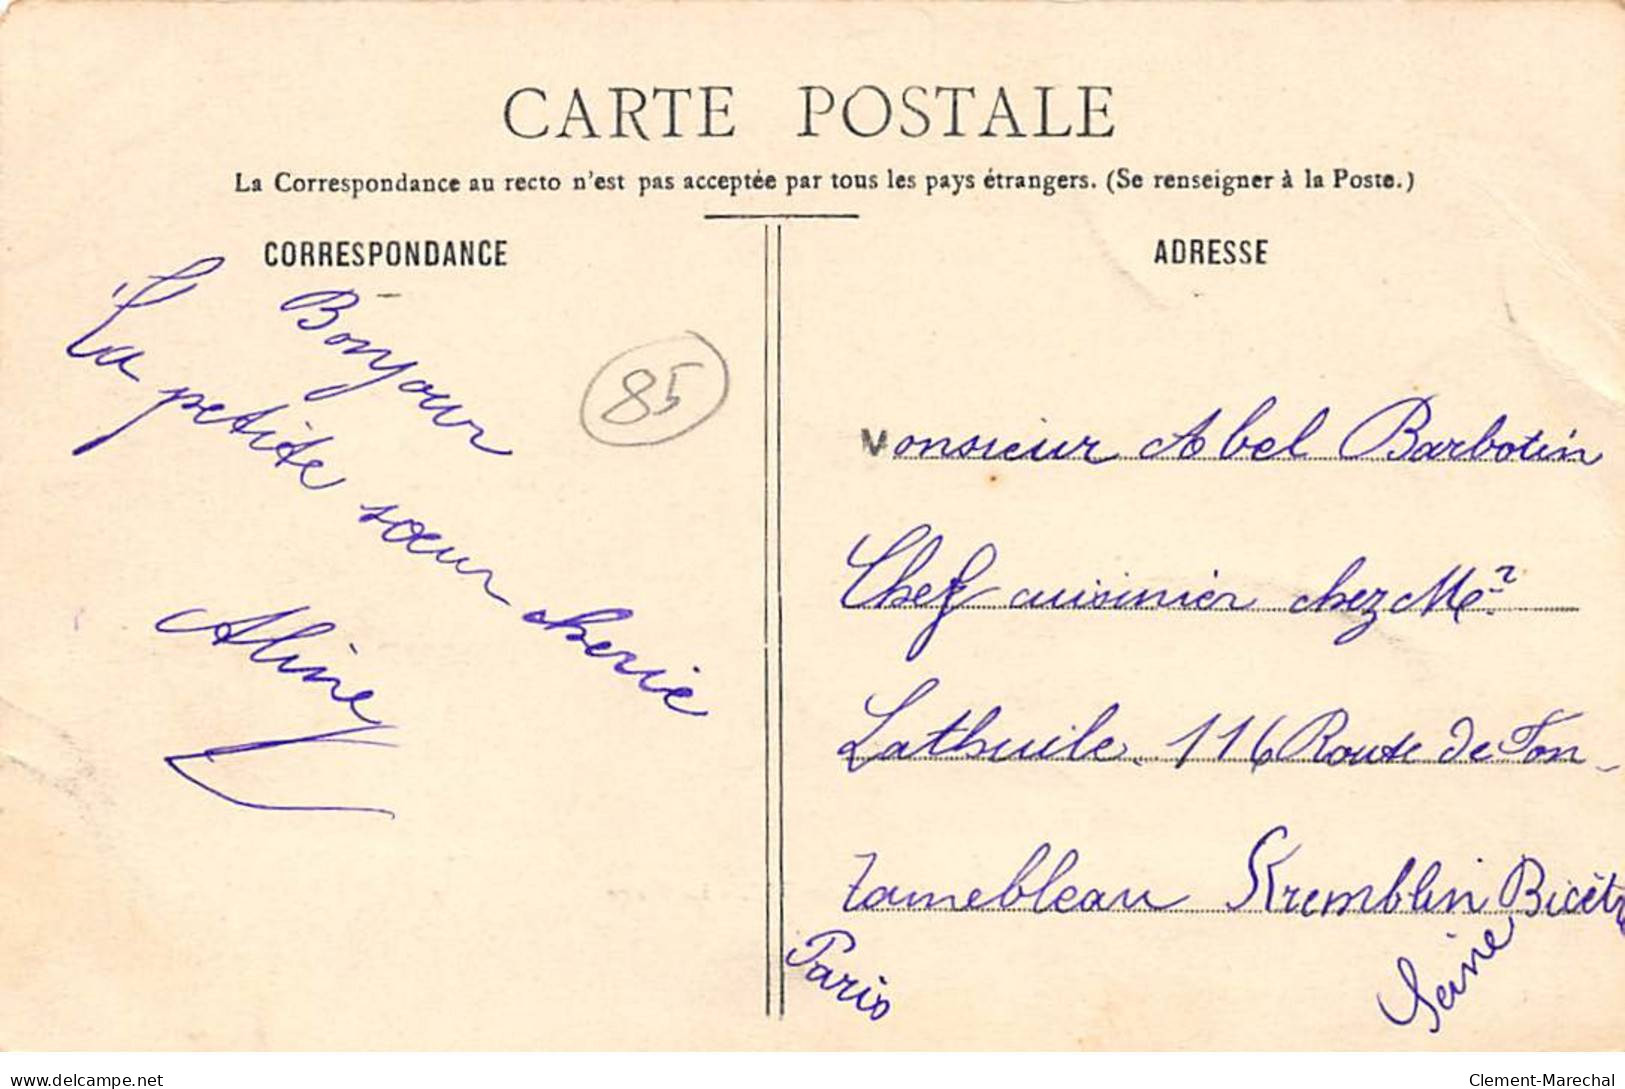 CARTE POSTALE
La Correspondance au recto n'est pas acceptée par tous les pays étrangers. (Se renseigner à la Poste.)
CORRESPONDANCE
Bonjour
Ta petite sœur cherie
Aline
85
ADRESSE
Monsieur Abel Barbotin
Chef cuisinier chez
Lathuile. 116 Route de Fon-
tainebleau Kremblin Bicêtre
Paris
Seine
delcampe.net
Clement-Marechal